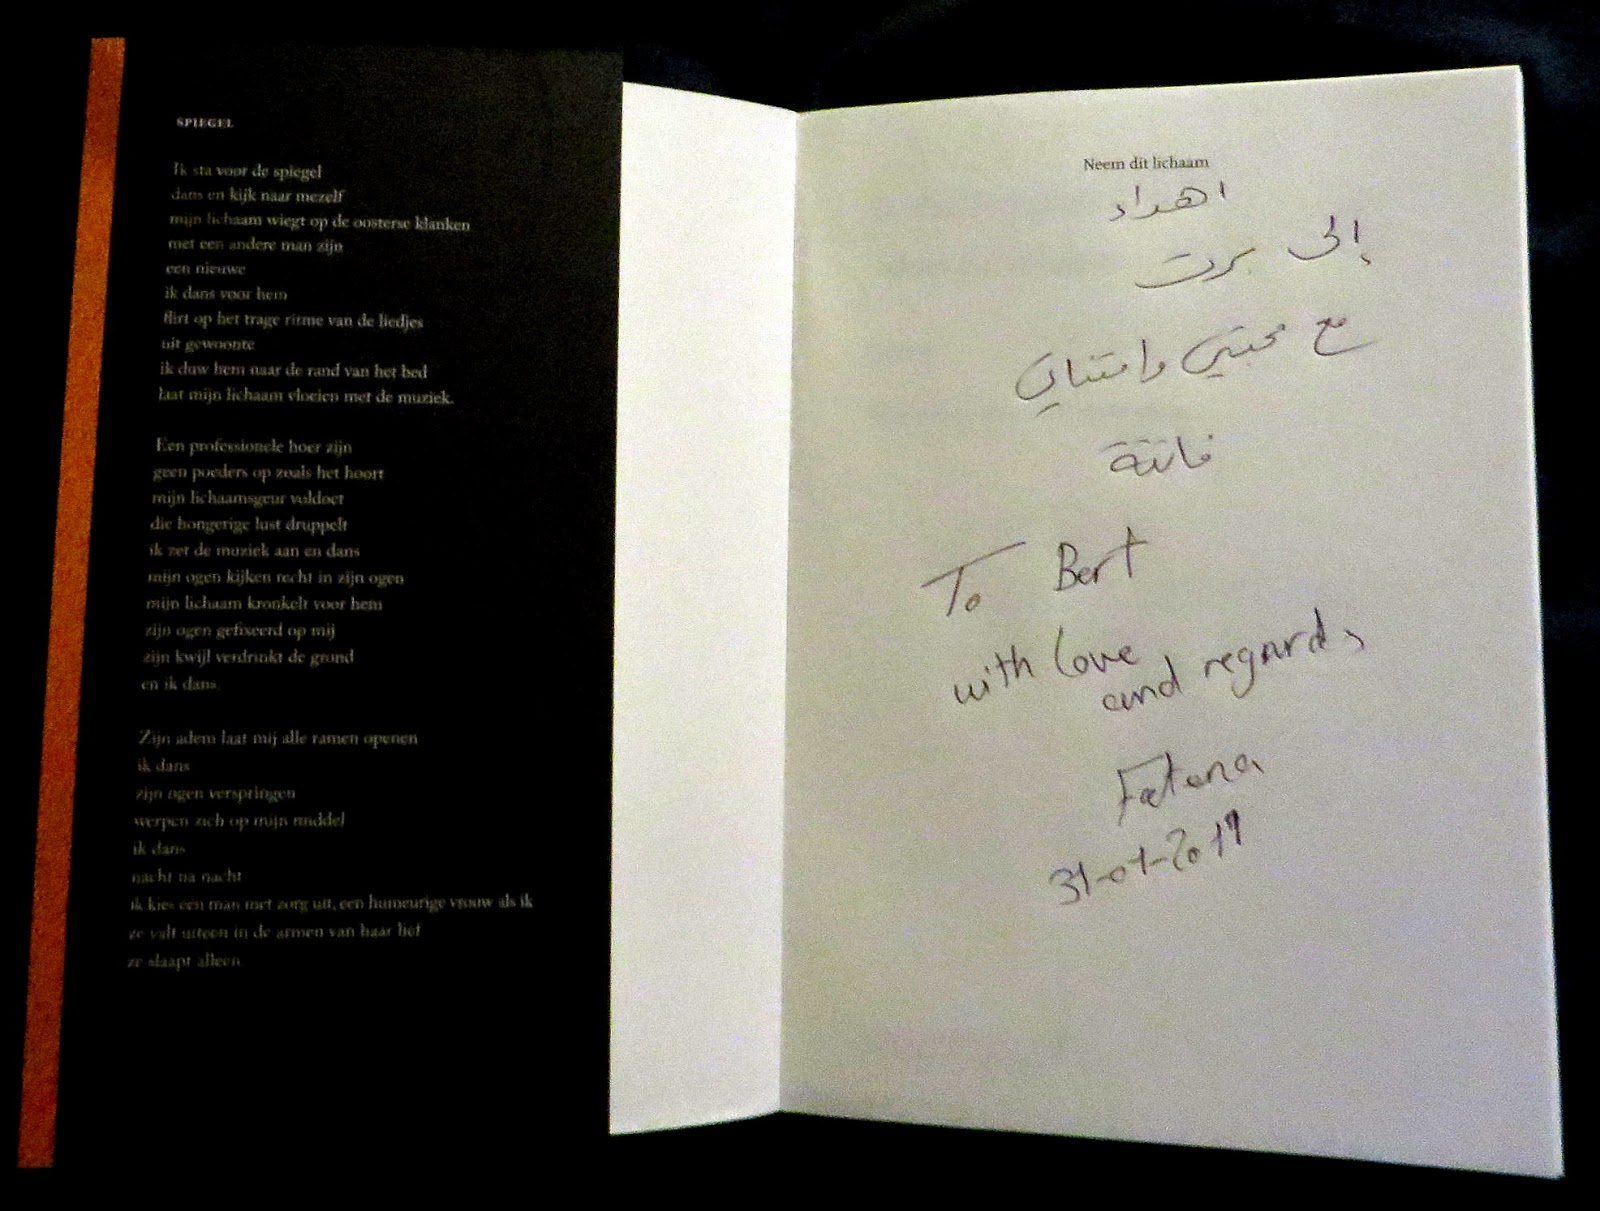 SPIEGEL
Ik sta voor de spiegel
dans en kijk naar mezelf
mijn lichaam wiegt op de oosterse klanken
met een andere man zijn
een nieuwe
ik dans voor hem
flirt op het trage ritme van de liedjes
uit gewoonte
ik duw hem naar de rand van het bed
laat mijn lichaam vloeien met de muziek.
Een professionele hoer zijn
geen poeders op zoals het hoort
mijn lichaamsgeur voldoet
die hongerige lust druppelt
ik zet de muziek aan en dans
mijn ogen kijken recht in zijn ogen
mijn lichaam kronkelt voor hem
zijn ogen gefixeerd op mij
zijn kwijl verdrinkt de grond
en ik dans.
Zijn adem laat mij alle ramen openen
ik dans
zijn ogen verspringen
werpen zich op mijn middel
ik dans
nacht na nacht
ik kies een man met zorg uit, een humeurige vrouw als ik
ze valt uiteen in de armen van haar lief
ze slaapt alleen.
Neem dit lichaam
اهداء
إلى برت
مع محبتي وامتناني
فاتنة
To Bert
with love
and regards
Fatena
31-01-2019